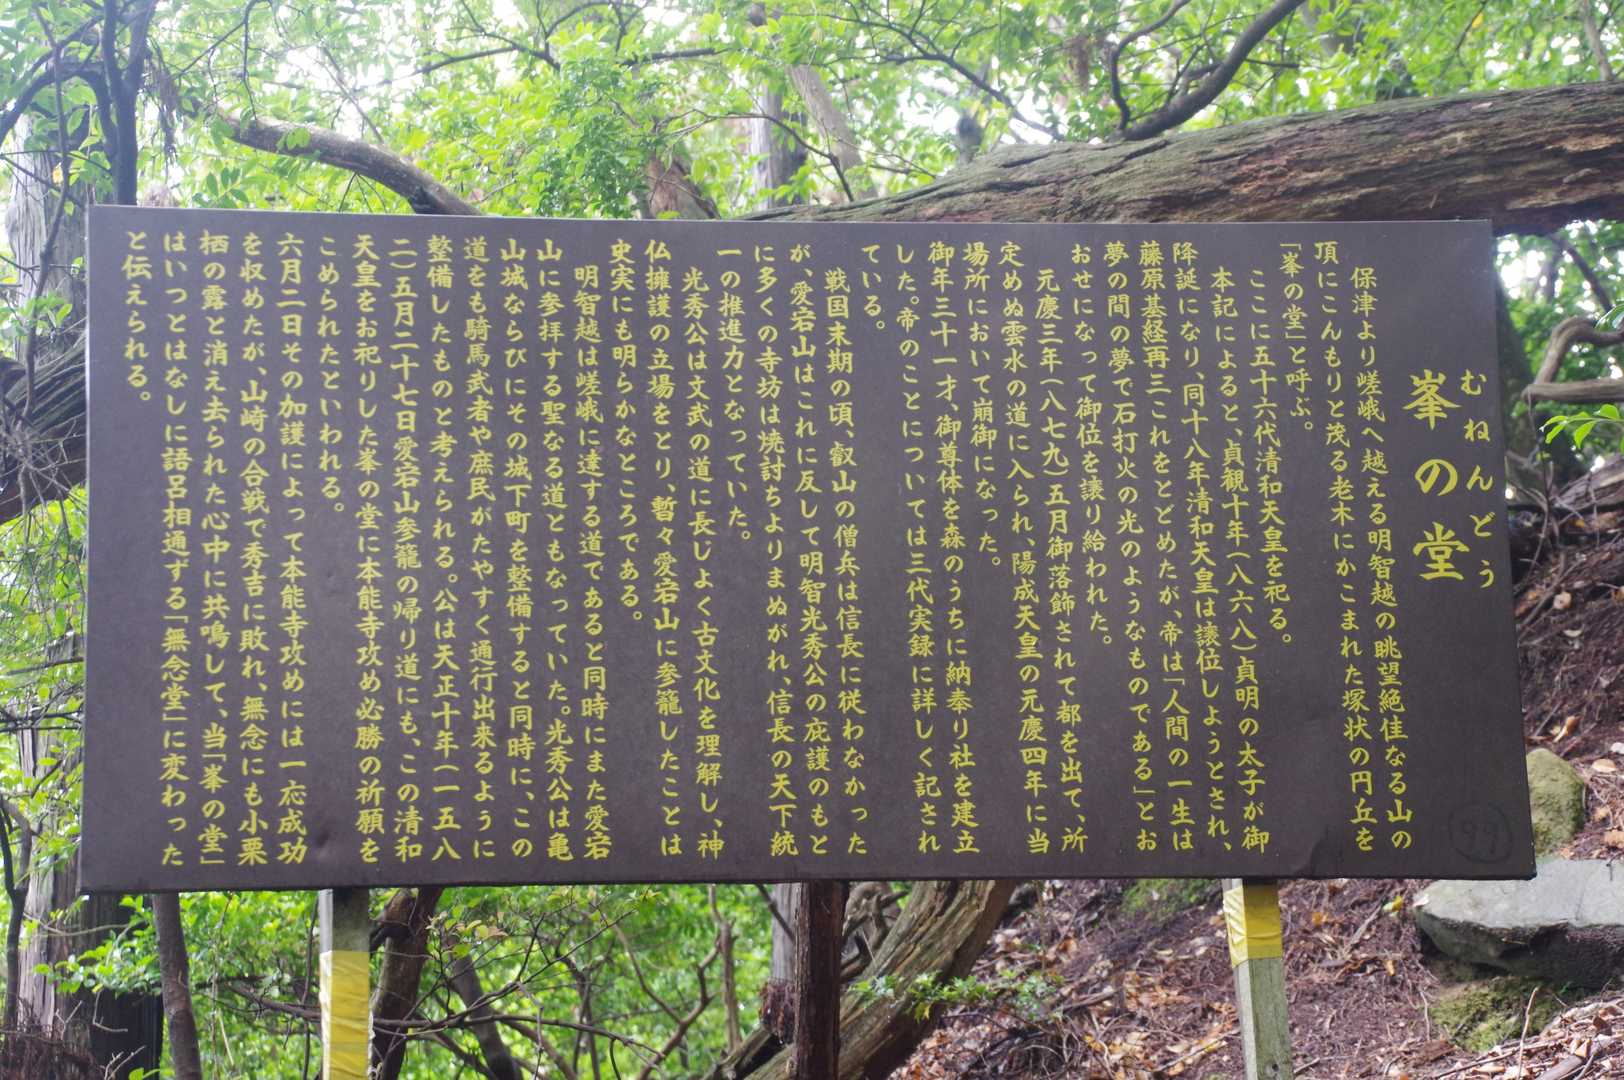 むねんどう
峯の堂
保津より嵯峨へ越える明智越の眺望絶佳なる山の
頂にこんもりと茂る老木にかこまれた塚状の円丘を
「峯の堂」と呼ぶ。
ここに五十六代清和天皇を祀る。
本記によると、貞観十年(八六八)貞明の太子が御
降誕になり、同十八年清和天皇は譲位しようとされ、
藤原基経再三これをとどめたが、帝は「人間の一生は
夢の間の夢で石打火の光のようなものである」とお
おせになって御位を譲り給われた。
元慶三年(八七九)五月御落飾されて都を出て、所
定めぬ雲水の道に入られ、陽成天皇の元慶四年に当
場所において崩御になった。
御年三十一才、御尊体を森のうちに納奉り社を建立
した。帝のことについては三代実録に詳しく記され
ている。
戦国末期の頃、叡山の僧兵は信長に従わなかった
が、愛宕山はこれに反して明智光秀公の庇護のもと
に多くの寺坊は焼討ちよりまぬがれ、信長の天下統
一の推進力となっていた。
光秀公は文武の道に長じよく古文化を理解し、神
仏擁護の立場をとり、暫々愛宕山に参籠したことは
史実にも明らかなところである。
明智越は嵯峨に達する道であると同時にまた愛宕
山に参拝する聖なる道ともなっていた。光秀公は亀
山城ならびにその城下町を整備すると同時に、この
道をも騎馬武者や庶民がたやすく通行出来るように
整備したものと考えられる。公は天正十年(一五八
二)五月二十七日愛宕山参籠の帰り道にも、この清和
天皇をお祀りした峯の堂に本能寺攻め必勝の祈願を
こめられたといわれる。
六月二日その加護によって本能寺攻めには一応成功
を収めたが、山崎の合戦で秀吉に敗れ、無念にも小栗
栖の露と消え去られた心中に共鳴して、当「峯の堂」
はいつとはなしに語呂相通ずる「無念堂」に変わった
と伝えられる。
99